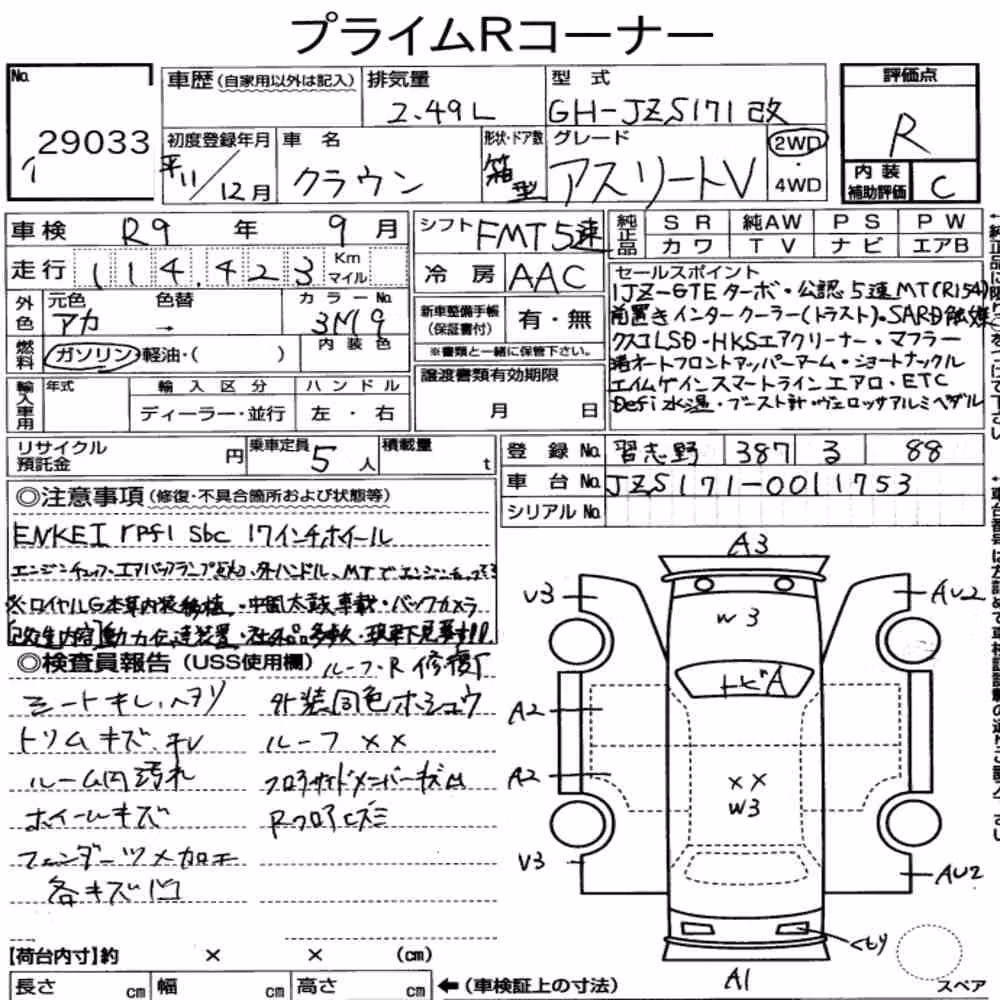 プライムRコーナー
No.
29033
車歴(自家用以外は記入)
排気量
2.49L
型式
GH-JZS171改
評価点
R
内装
補助評価
C
初度登録年月
平11/12月
車名
クラウン
形状・ドア数
箱型
グレード
アスリートV
2WD
・
4WD
車検 R9年 9月
走行 114,423 Km マイル
シフト FMT5速
冷房 AAC
純正品
SR 純AW PS PW
カワ TV ナビ エアB
外色
元色 色替 カラーNo.
アカ → 3M9
内装色
燃料
ガソリン・軽油・( )
新車整備手帳
(保証書付)
有・無
※書類と一緒に保管下さい。
譲渡書類有効期限
月 日
セールスポイント
1JZ-GTEターボ・公認5速MT(R154)
前置きインタークーラー(トラスト)・SARD触媒
クスコLSD・HKSエアクリーナー・マフラー
オートフロントアッパーアーム・ショートナックル
エイムゲインスマートラインエアロ・ETC
Defi水温・ブースト計・ヴェロッサアルミペダル
輸入車用
年式 輸入区分 ハンドル
ディーラー・並行 左・右
リサイクル
預託金
円
乗車定員
5人
積載量
t
登録No. 習志野 387 る 88
車台No. JZS171-0011753
シリアルNo.
◎注意事項(修復・不具合箇所および状態等)
ENKEI rpf1 sbc 17インチホイール
エンジンチェック・エアバックランプ
※ロイヤルG本革内装移植・中間太鼓車載・バックカメラ
[改造内容]動力伝達装置・社外品多数・現車下見要す!!
◎検査員報告(USS使用欄)
ルーフ・R修復
シートキレ、ヘタリ
外装同色ホシュウ
トリムキズ、キレ
ルーフ××
ルーム内汚れ
フロアサイドメンバーキズ凹
ホイールキズ
Rフロアヒズミ
フェンダーツメカロエ
各キズ凹
A3
V3
AU2
W3
トビA
A2
A2
××
W3
V3
AU2
くもり
A1
スペア
【荷台内寸】約 × × (cm)
長さ cm 幅 cm 高さ cm
←(車検証上の寸法)